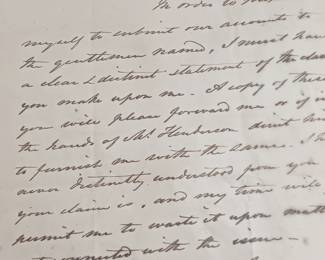 In order to
myself to submit our accounts to
the gentlemen named, I must have
a clear & distinct statement of the
you make upon me. A copy of these
you will please forward me or if in
the hands of Mr. Henderson direct him
to furnish me with the same. I
never distinctly understood from you
your claim is, and my time will
permit me to waste it upon
connected with the issue -